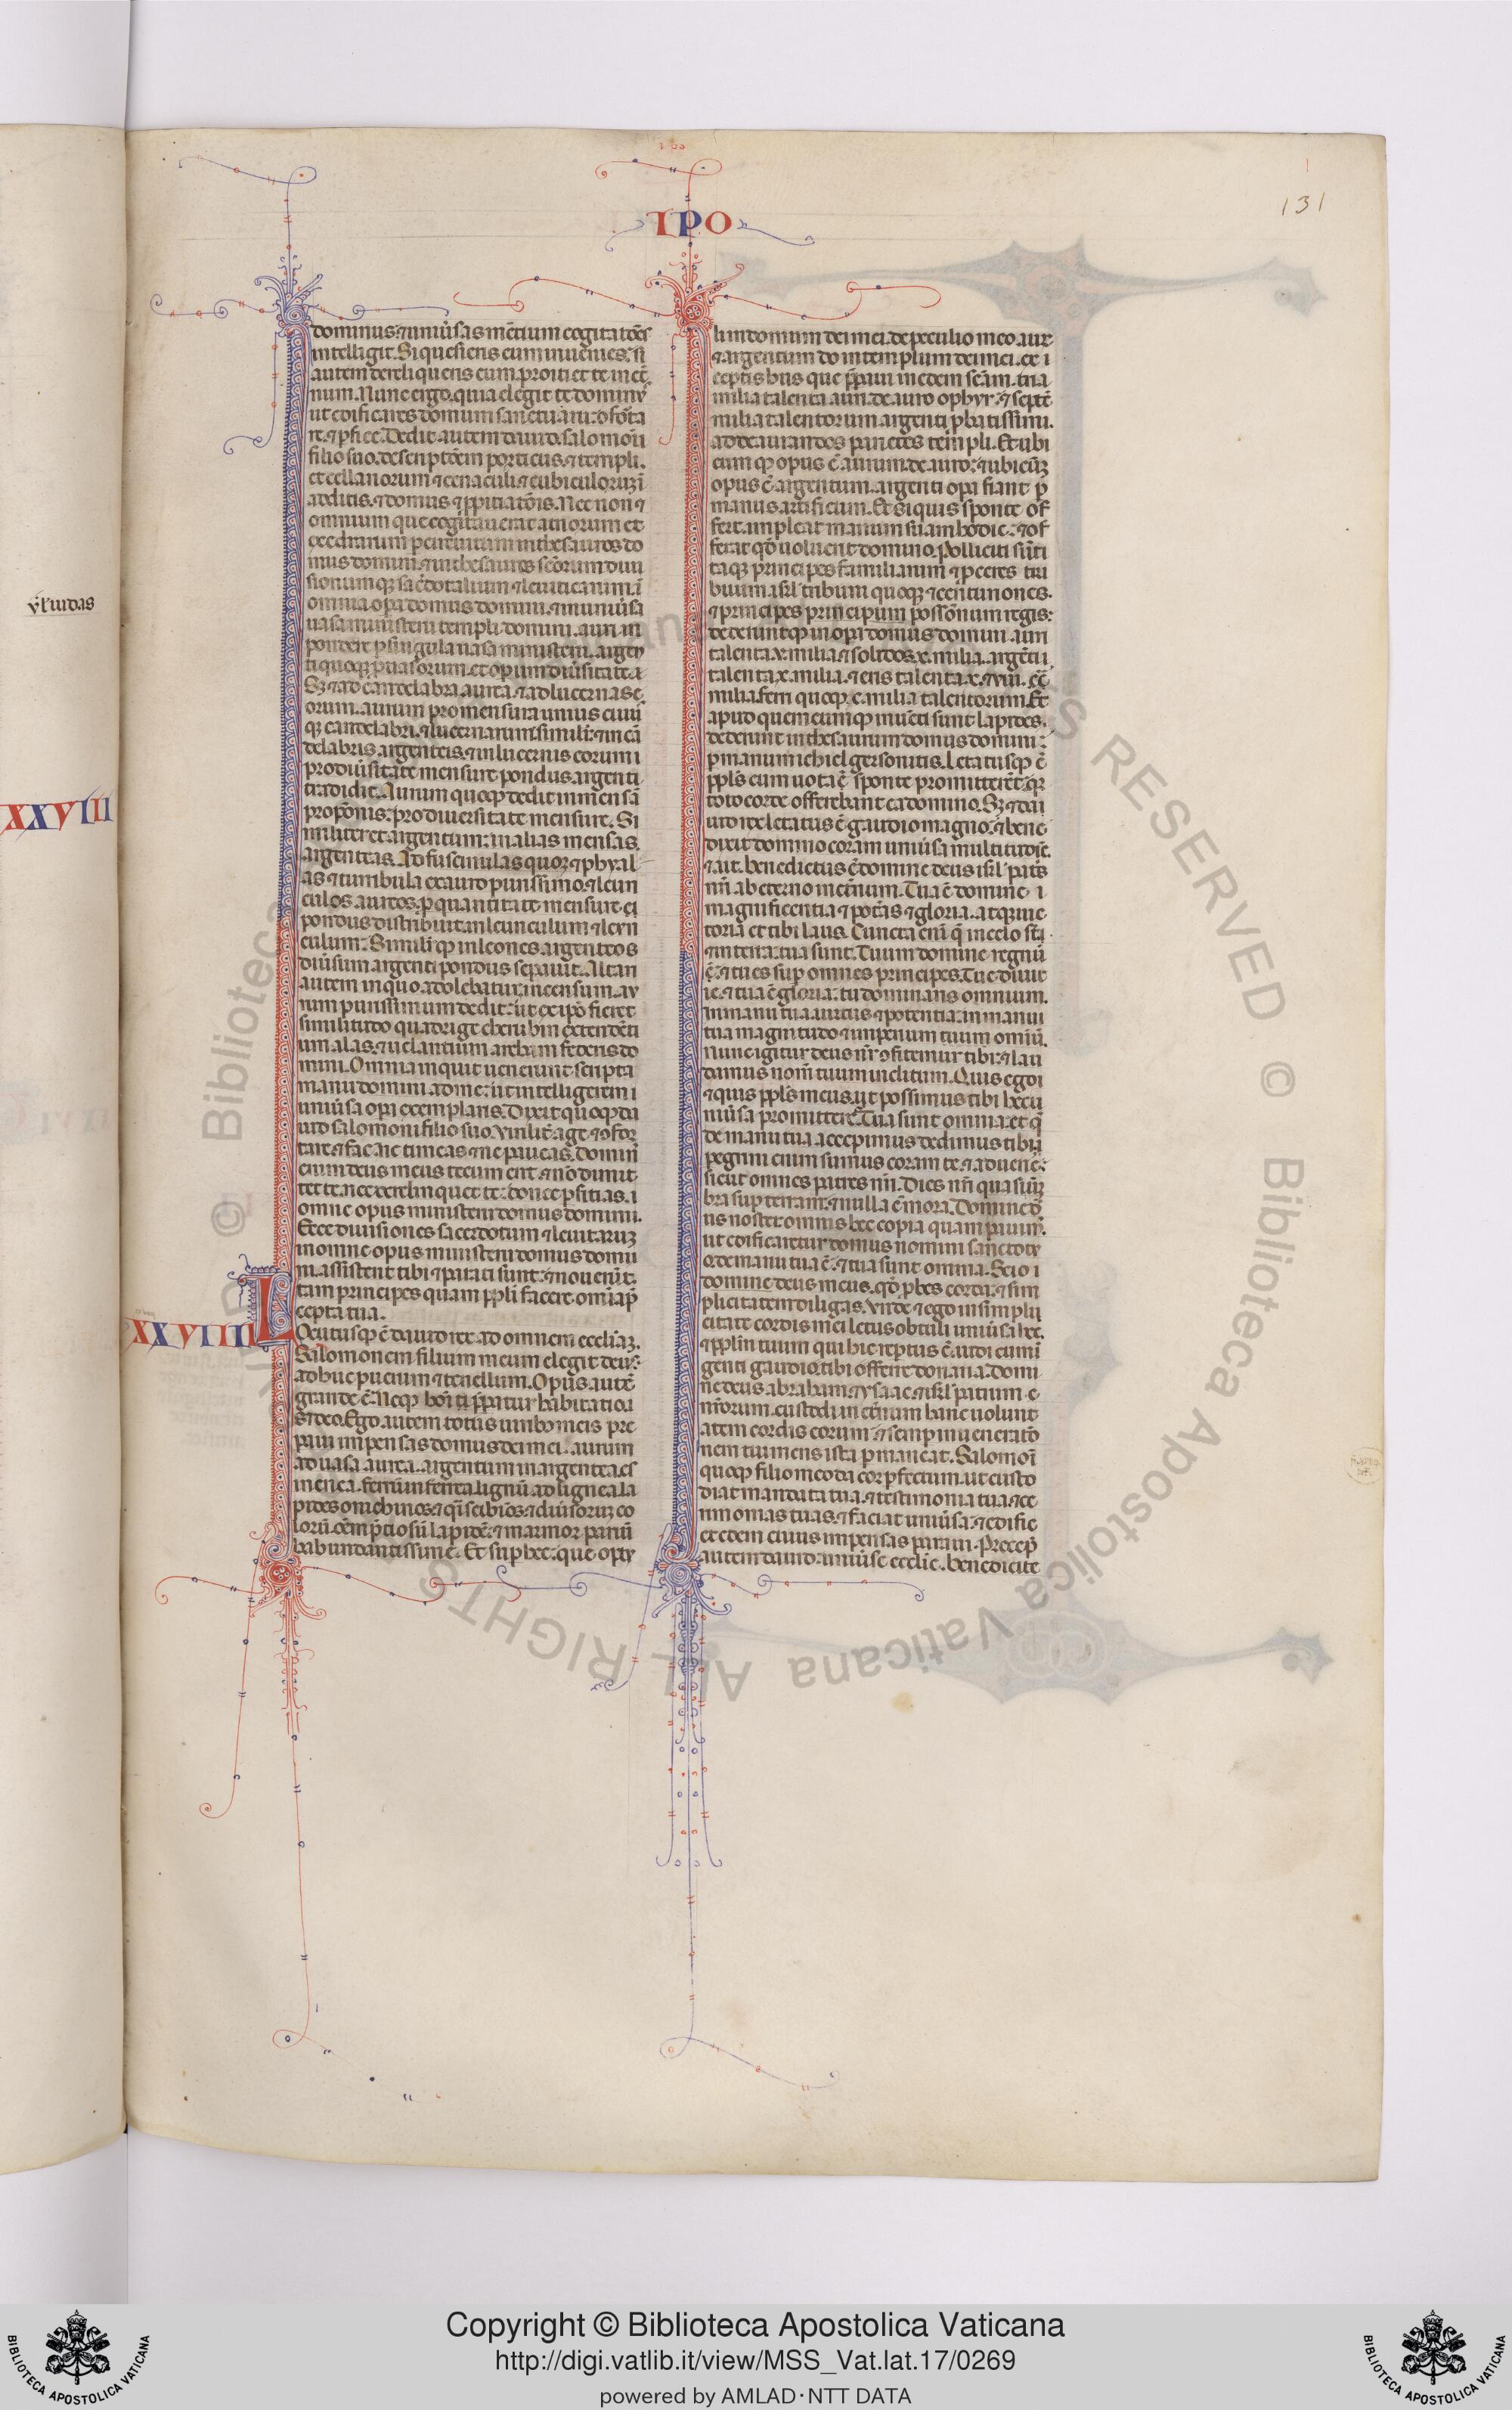 131
IPO
dominus. ⁊ uniuͥsas mētium cogitatōes
intelligit. Si quesieris eum inuenies. si
autem dereliqueris eum. proiciet te in eť
num. Nunc ergo. quia elegit te dominꝰ
ut edificares domum sanctuarii. ↄfoꝛta
re. ⁊ ꝑfice. Dedit autem dauid. salomōi
filio suo. descriptōem poꝛticus. ⁊ templi.
et cellarioꝛum ⁊ cenaculi. ⁊ cubiculoꝛuꝫ ī
aditis. ⁊ domus ꝓpitiatōis. Nec non ⁊
omnium que cogitauerat atrioꝛum et
exedrarum ꝑ circuitum in thesauros do
mus domini. ⁊ in thesauros scōꝛum diui
sionumqꝫ sacerdotalium ⁊ leuiticarum. ī
omnia oꝑa domus domini. ⁊ in uniuͥsa
uasa ministerii templi domini. auri in
pondere ꝑ singula uasa ministerii. argen
ti quoqꝫ ꝓ uasoꝛum. et opum diuͥsitate.
Sꝫ ⁊ ad candelabra aurea. ⁊ ad lucernas e
oꝛum. aurum pro mensura unius cuiu
qꝫ candelabri. ⁊ lucernarum. simiľ. ⁊ in cā
delabris argenteis. ⁊ in lucernis eoꝛum
pro diuͥsitate mensure. pondus argenti
tradidit. Aurum quoqꝫ dedit in mensā
propōnis. pro diuersitate mensure. Si
militer et argentum. in alias mensas
argenteas. Ad fuscinulas quoꝫ ⁊ phyal
as ⁊ turribula ex auro purissimo. ⁊ leun
culos aureos. ꝓ quantitate mensure.
pondus distribuit. in leunculum ⁊ leun
culum. Similiqꝫ in leones argenteos
diuͥsum argenti pondus seꝑauit. Altari
autem in quo adolebatur incensum. au
rum purissimum dedit. ut ex ipō fieret
similitudo quadrige cherubin extendēti
um alas. ⁊ uelantium archam federis do
mini. Omnia inquit uenerunt scripta
manu domini ad me. ut intelligerem
uniuͥsa oꝑa exemplaris. Dixit quoqꝫ da
uid salomoni filio suo. Viriliť age. ⁊ ↄfoꝛ
tare. ⁊ fac. ne timeas. ⁊ ne paueas. Domin
enim deus meus tecum erit. ⁊ nō dimit
tet te. nec derelinquet te. donec ꝑficias
omne opus ministerii domus domini.
Ecce diuisiones sacerdotum ⁊ leuitaruꝫ
in omne opus ministerii domus domi
ni. assistent tibi ⁊ parati sunt. ⁊ nouerūt.
tam principes quam ppľi facere omīa p̄
cepta tua.
XXVIIII Locutusqꝫ ē dauid rex ad omnem eccliaꝫ.
Salomonem filium meum elegit deus.
adhuc puerum ⁊ tenellum. Opus autē
grande ē. Neqꝫ homini p̄ꝑatur habitatio
sꝫ deo. Ego autem totis uiribꝫ meis pre
paui impensas domus dei mei. aurum
ad uasa aurea. argentum in argentea. es
in enea. ferrum in ferrea. lignū ad lignea. la
pides onichinos. ⁊ qͣsi stibinos. ⁊ diuͥsoꝛuꝫ co
loꝛū. oēm p̄ciosū lapidē. ⁊ marmoꝛ pariū
habundantissime. Et suꝑ hec. que optu
li in domum dei mei. de peculio meo aurū
⁊ argentum do in templum dei mei. ex
ceptis hiis que p̄paui in edem scām. tria
milia talenta auri. de auro ophyr. ⁊ septē
milia talentoꝛum argenti ꝓbatissimi.
ad deaurandos parietes templi. Et ubi
cumqꝫ opus ē aurum. de auro. ⁊ ubicūqꝫ
opus ē argentum. argenti opa fiant ꝑ
manus artificum. Et si quis sponte of
fert. impleat manum suam hodie. ⁊ of
ferat qd̄ uoluerit domino. Polliciti sūt
itaqꝫ principes familiarum ⁊ ꝓceres tri
buum isrľ. tribuni quoqꝫ ⁊ centuriones.
⁊ principes principum possōnum regis.
dederuntqꝫ in oꝑa domus domini auri
talenta. v. milia. ⁊ solidos. x. milia. argēti
talenta. x. milia. ⁊ eris talenta. x. ⁊ viii.
milia. ferri quoqꝫ. c. milia talentoꝛum. Et
apud quemcumqꝫ inuēti sunt lapides.
dederunt in thesaurum domus domini.
ꝑ manum iehiel gersonitis. Letatusqꝫ ē
ppľs cum uota sponte promitterēt. qꝛ
toto coꝛde offerebant ea domino. Sꝫ ⁊ daui
uid rex letatus ē gaudio magno. ⁊ bene
dixit domino coꝛam uniuͥsa multitudīe.
⁊ ait. benedictus es domine deus isrľ patͥs
nrī. ab eterno in eťnum. Tua ē domine
magnificentia ⁊ potētas ⁊ gloꝛia. atqꝫ uic
toꝛia. et tibi laus. Cuncta enī q̄ in celo sūt.
⁊ in terra. tua sunt. Tuum domine regnū
ē. ⁊ tu es suꝑ omnes principes. Tue diuit
ie. ⁊ tua ē gloꝛia. tu dominaris omnium.
in manu tua. uirtus ⁊ potentia. in manu
tua magnitudo ⁊ imperium tuum omīū.
nunc igitur deus nr̄. ↄfitemur tibi. ⁊ lau
damus nom̄ tuum inclitum. Quis ego
⁊ quis ppľs meus. ut possimus tibi hec u
niuͥsa promittere. Tua sunt omnia. et q̄
de manu tua accepimus dedimus tibi.
peregrini enim sumus coꝛam te. ⁊ aduene.
sicut omnes patres nrī. Dies nrī quasi ū
bra suꝑ terram. ⁊ nulla ē moꝛa. Domine d
us noster. omnis hec copia quam parauim̄.
ut edificaretur domus nomini sancto tuo
de manu tua ē. ⁊ tua sunt omnia. Scio
domine deus meus. qd̄ ꝓbes coꝛda. ⁊ sim
plicitatem diligas. vnde ⁊ ego in simpli
citate coꝛdis mei letus obtuli uniuͥsa hec.
⁊ ppľm tuum qui hic reptus ē. uidi cum ī
genti gaudio. tibi offerre donaria. Domi
ne deus abraham. ⁊ ysaac. ⁊ isrľ patrum
nr̄oꝛum. custodi in eťnum hanc uolunt
atem coꝛdis eoꝛum. ⁊ semꝑ in ueneratō
nem tui mens ista ꝑmaneat. Salomoī
quoqꝫ filio meo da coꝛ ꝑfectum. ut custo
diat mandata tua. ⁊ testimonia tua. ⁊ ce
rimonias tuas. ⁊ faciat uniuͥsa. ⁊ edific
et edem. cuius impensas paraui. Precep
autem dauid. uniuͥse ecclie. benedicite
XXVIII
Copyright © Biblioteca Apostolica Vaticana
http://digi.vatlib.it/view/MSS_Vat.lat.17/0269
powered by AMLAD·NTT DATA
BIBLIOTECA APOSTOLICA VATICANA
BIBLIOTECA APOSTOLICA VATICANA
© Biblioteca Apostolica Vaticana ALL RIGHTS RESERVED